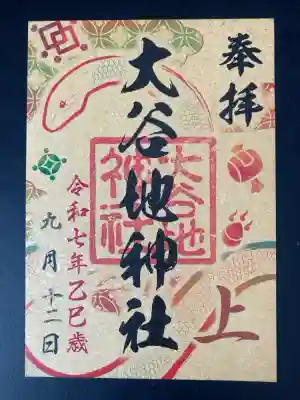 奉拝
大谷地神社
大谷地
神社
上
令和七年乙巳歳
九月十二日